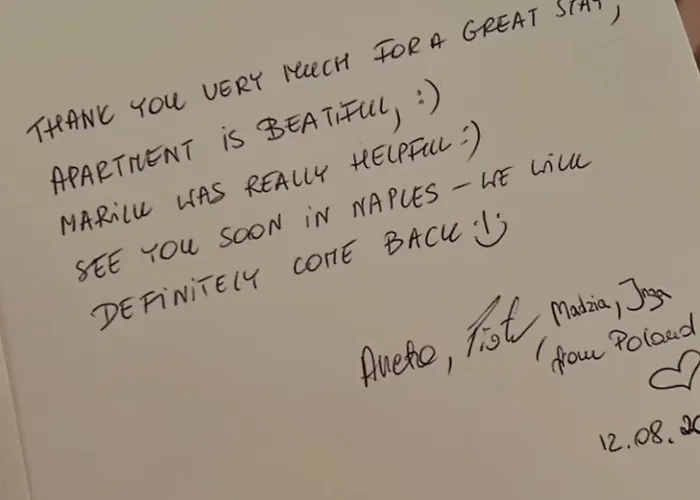 THANK YOU VERY MUCH FOR A GREAT STAY,
APARTMENT IS BEATIFUL, :)
MARILU WAS REALLY HELPFUL :)
SEE YOU SOON IN NAPLES – WE WILL
DEFINITELY COME BACK :)
Aneta, Piotr, Madzia, Inga
from Poland
12.08.20